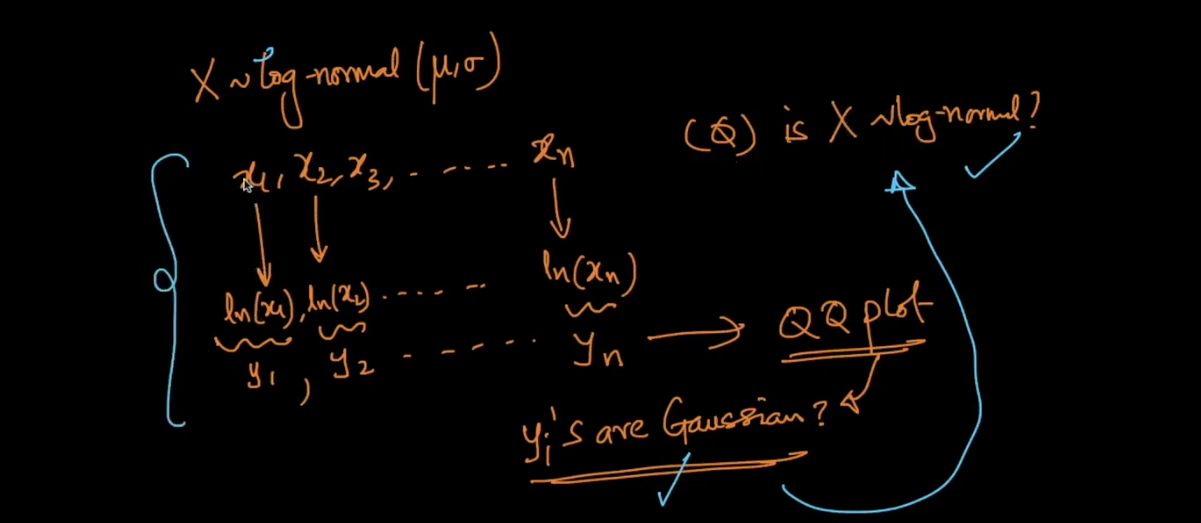 X ~ log-normal (μ,σ)
(Q) is X ~ log-normal?
x1, x2, x3, ..... xn
ln(x1), ln(x2) ..... ln(xn)
y1, y2 ..... yn → QQ plot
yi's are Gaussian?